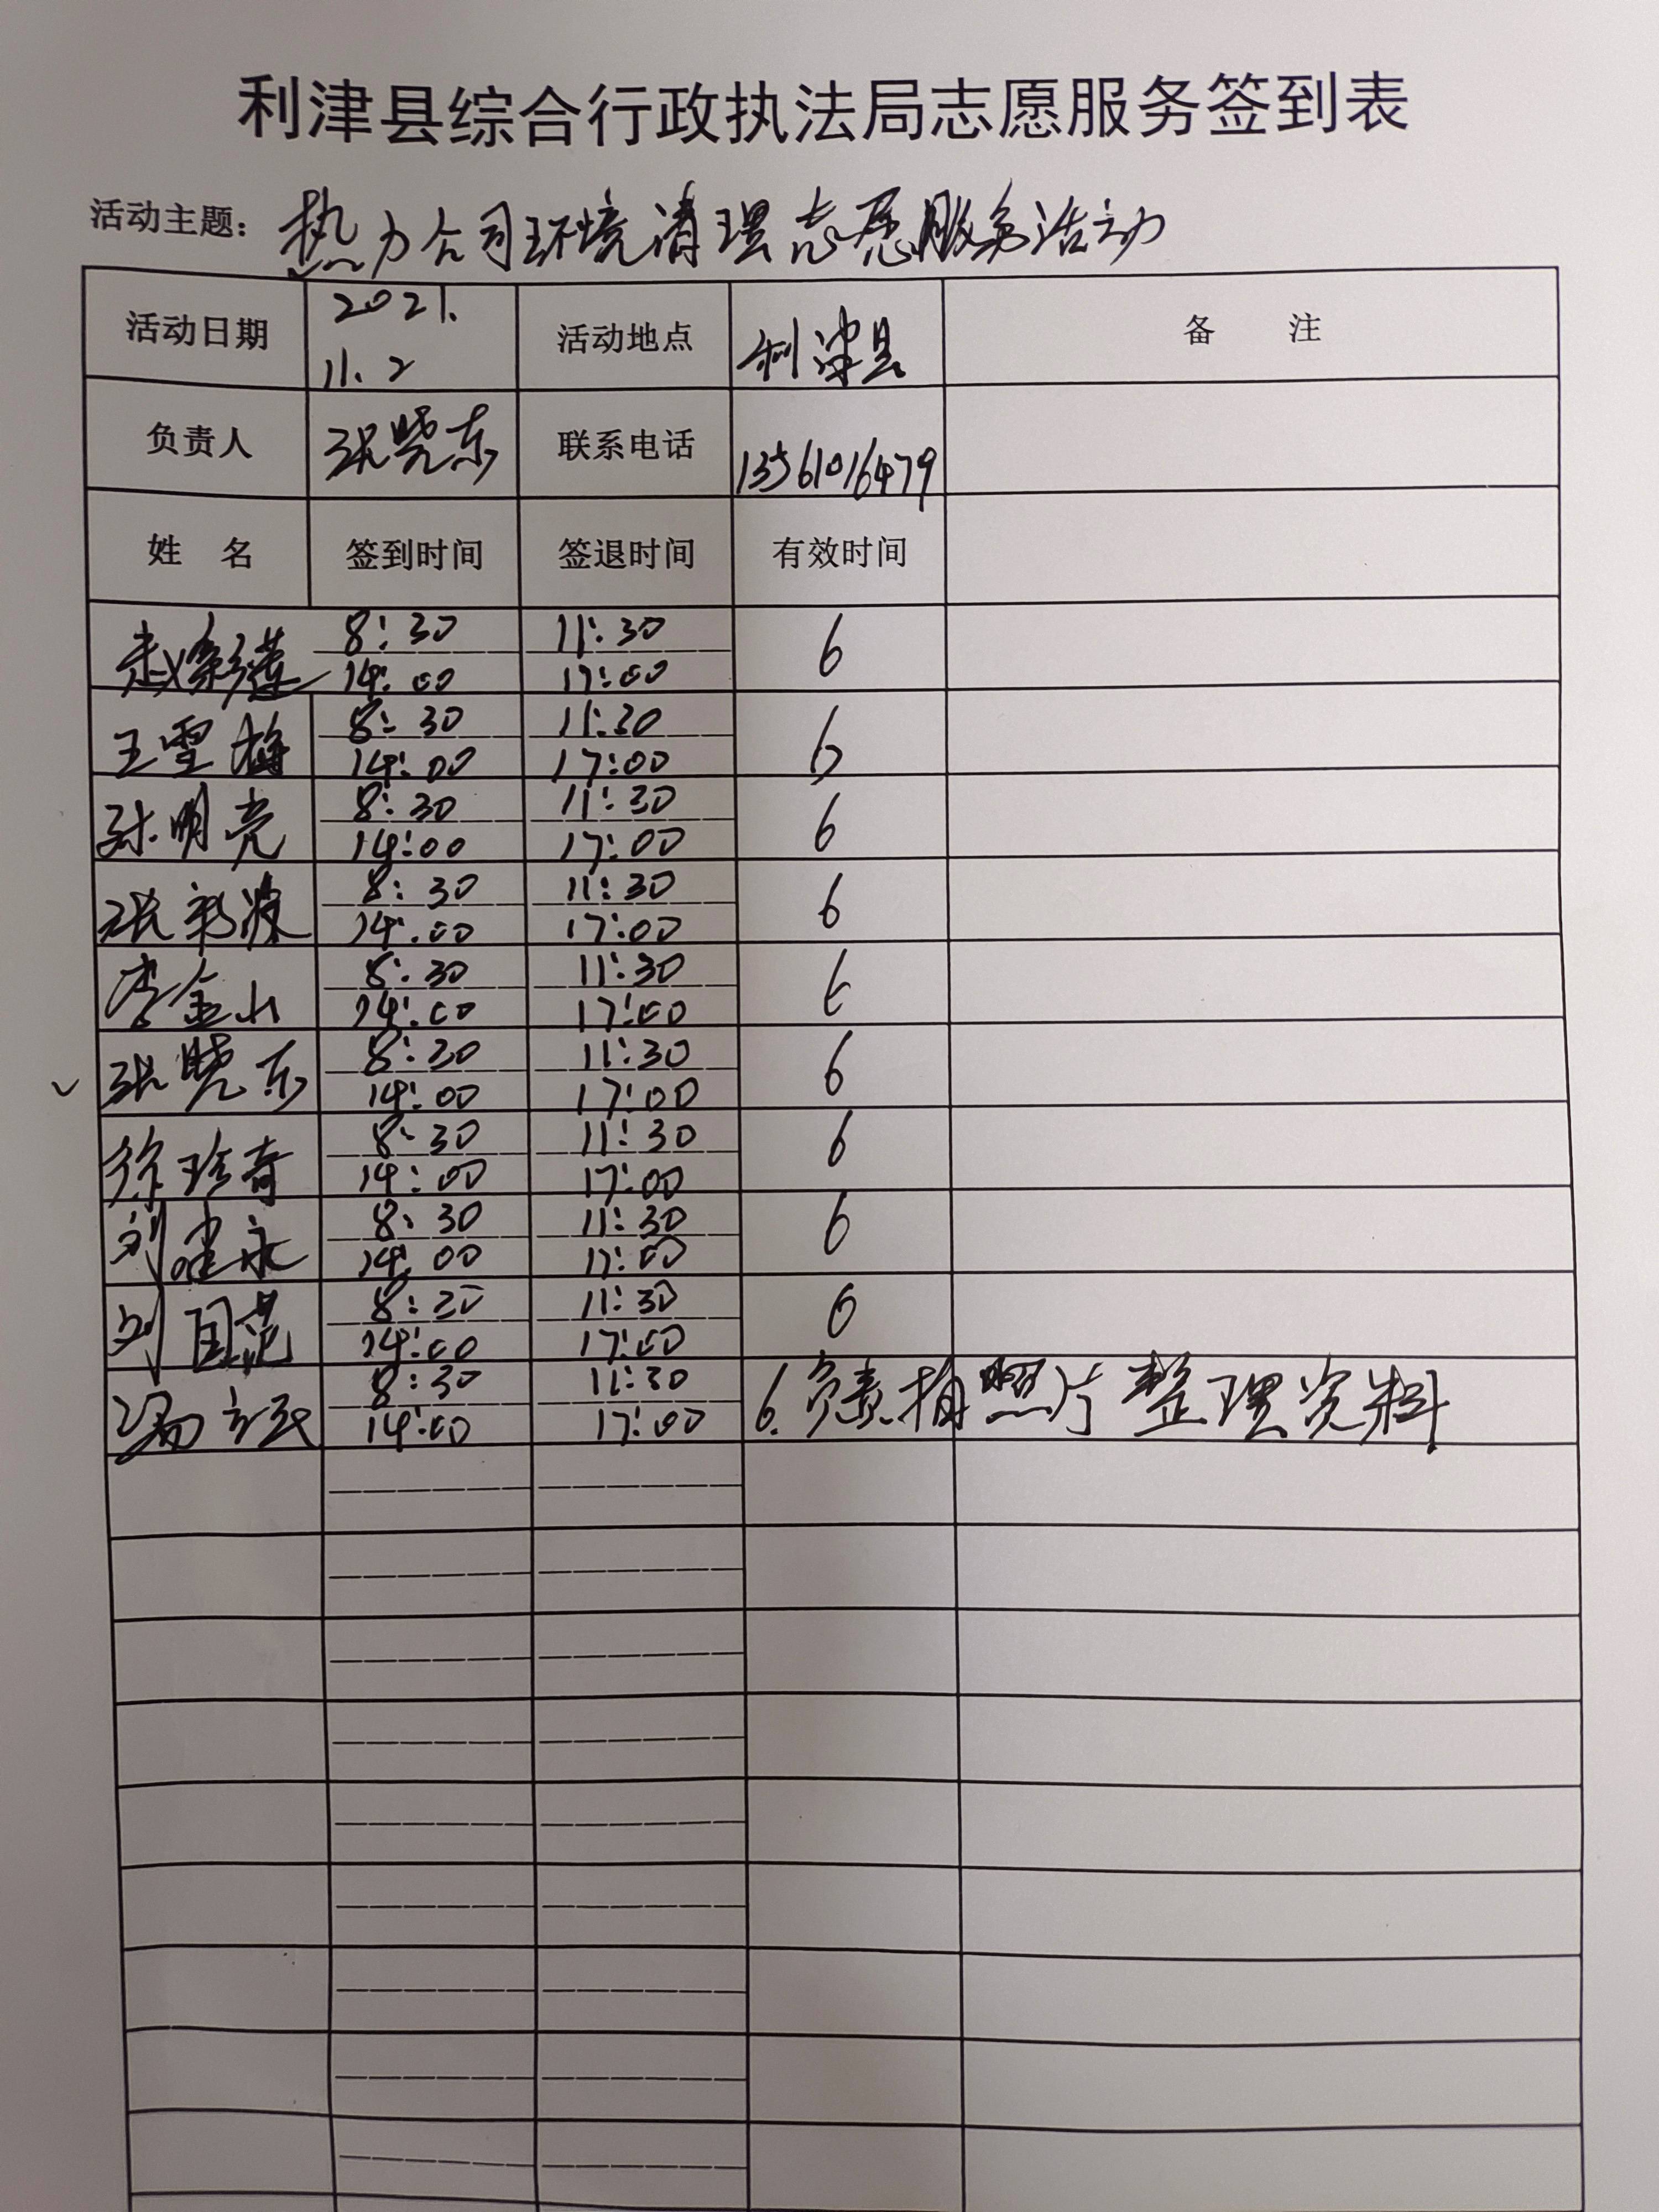 利津县综合行政执法局志愿服务签到表
活动主题：热力公司环境清理志愿服务活动
活动日期 2021. 11.2 活动地点 利津县 备 注
负责人 张晓东 联系电话 13561016479
姓 名 签到时间 签退时间 有效时间
赵彩莲 8:30 11:30 6
14:00 17:00
王雪梅 8:30 11:30 6
14:00 17:00
孙明亮 8:30 11:30 6
14:00 17:00
张新波 8:30 11:30 6
14:00 17:00
李金山 8:30 11:30 6
14:00 17:00
张晓东 8:30 11:30 6
14:00 17:00
徐珍奇 8:30 11:30 6
14:00 17:00
刘建永 8:30 11:30 6
14:00 17:00
刘国 8:30 11:30 6
14:00 17:00
冯立民 8:30 11:30 6.负责拍照片整理资料
14:00 17:00